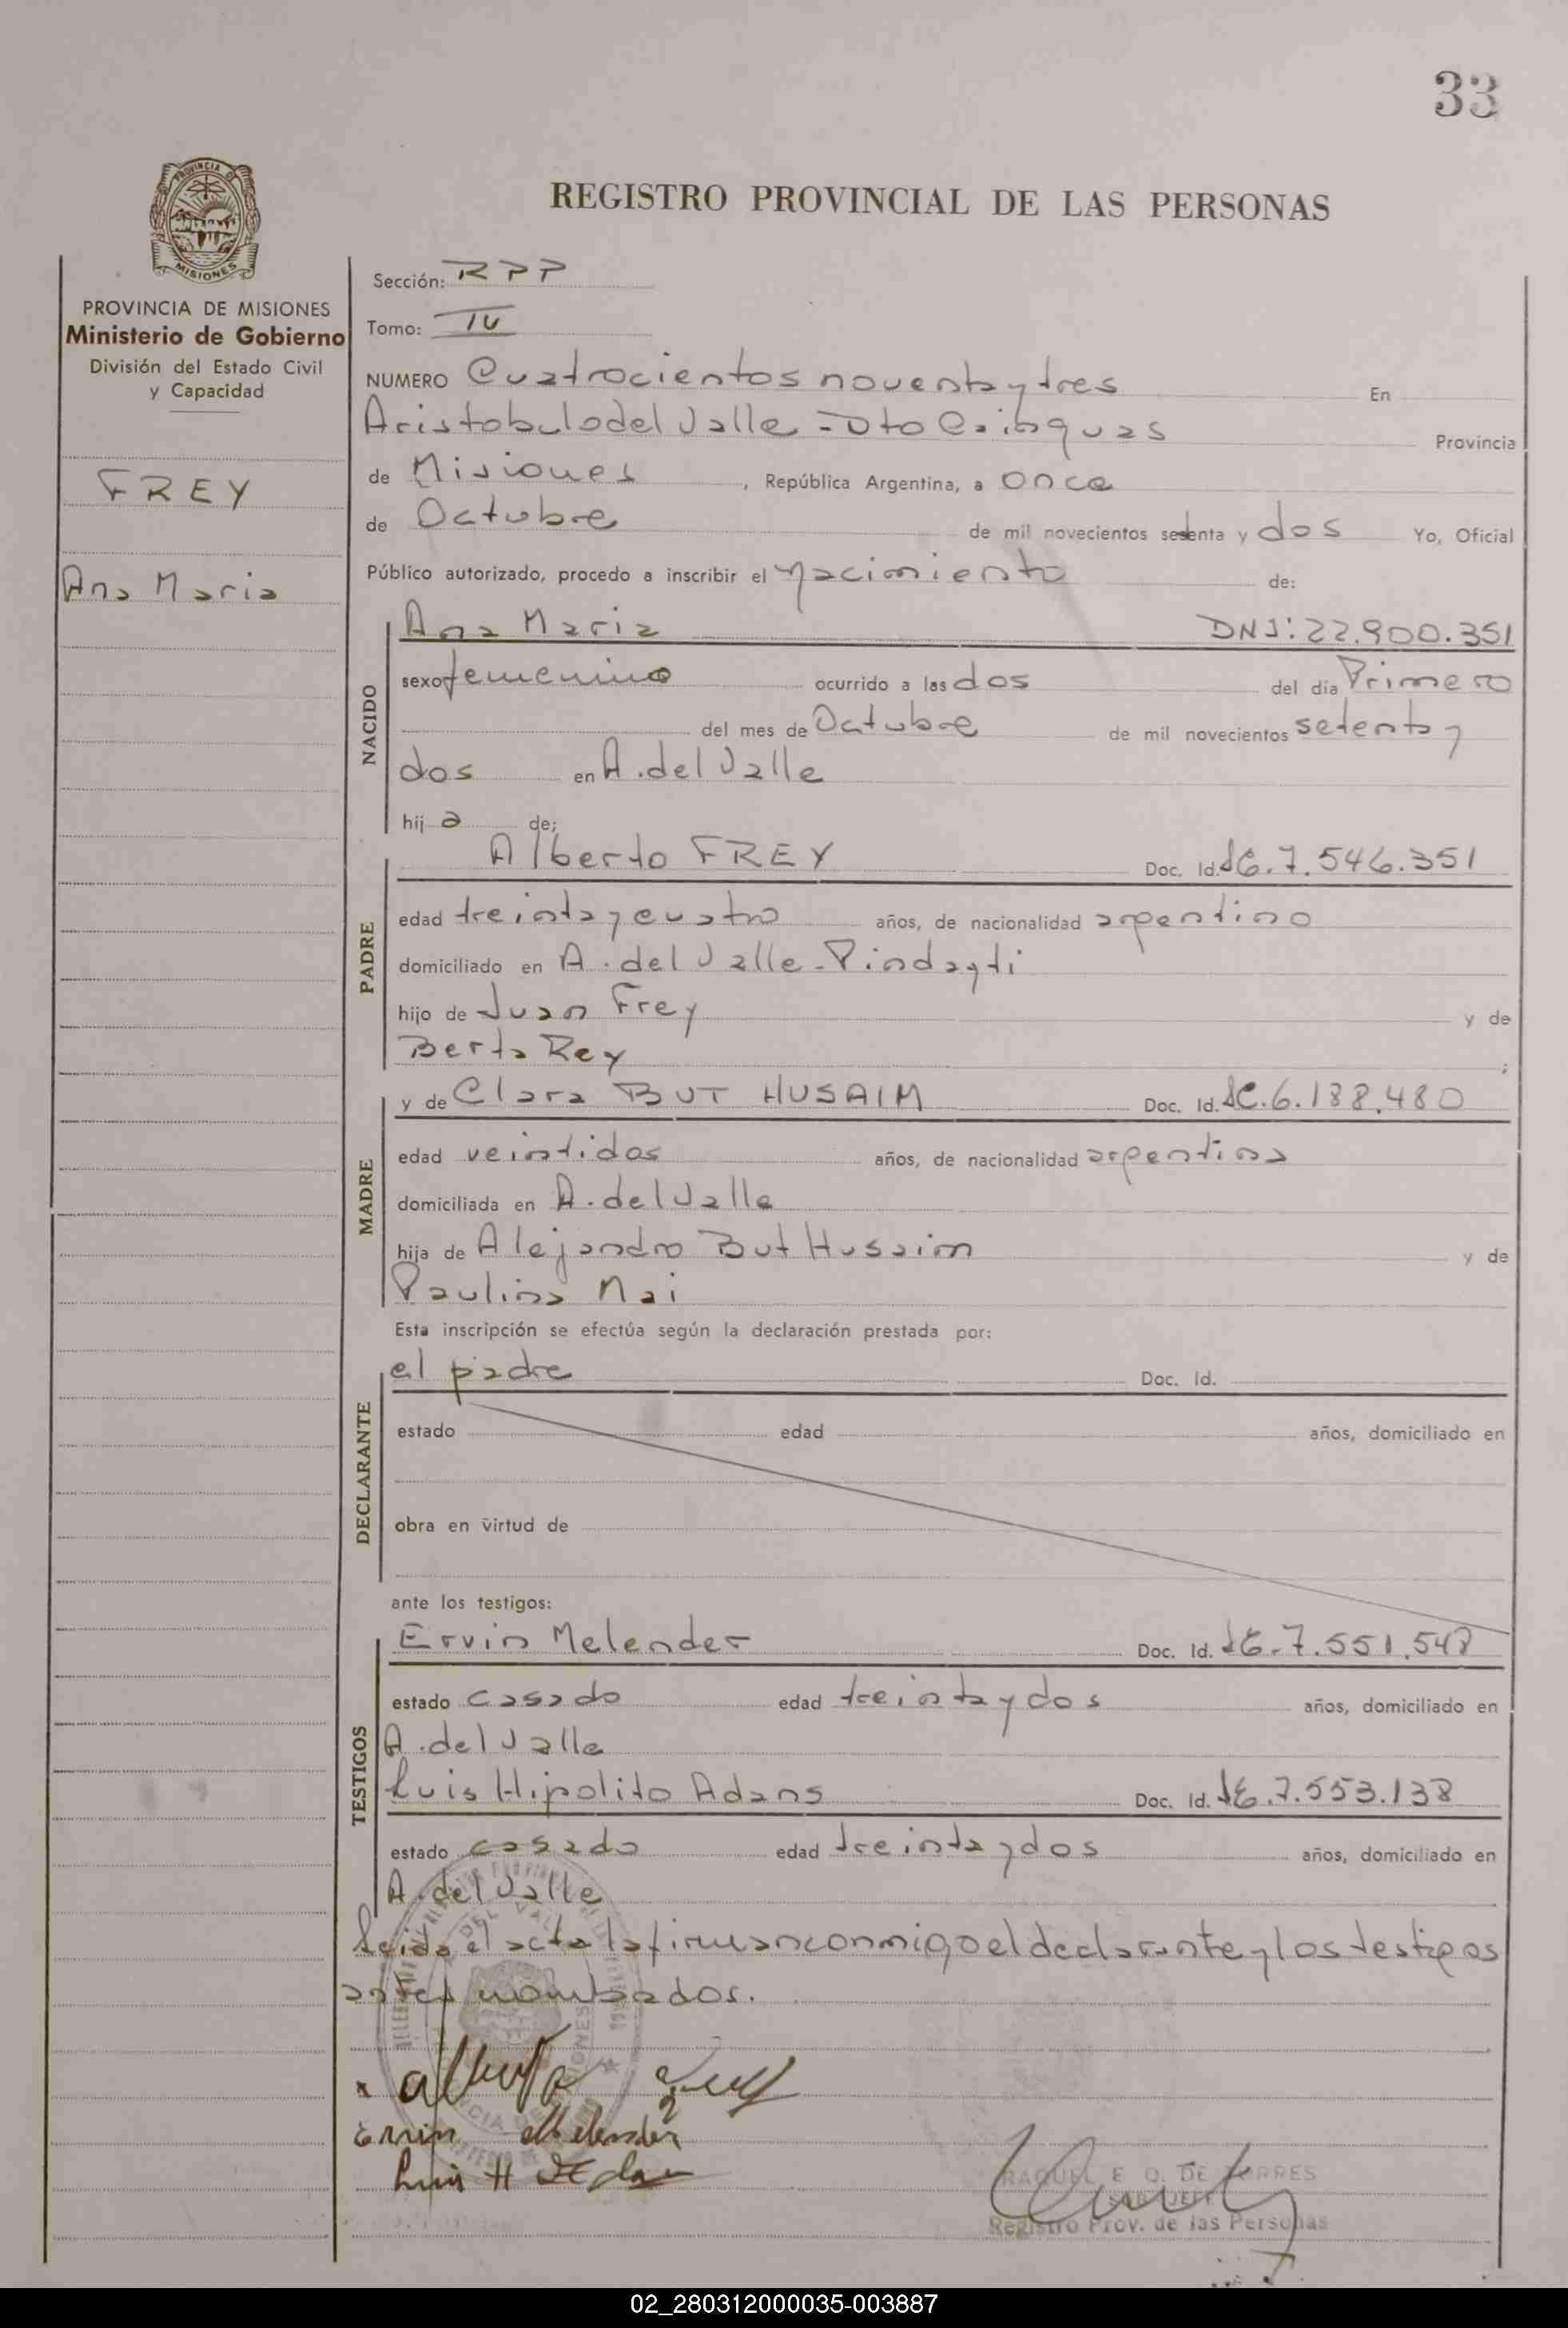 33
PROVINCIA DE
MISIONES
REGISTRO PROVINCIAL DE LAS PERSONAS
PROVINCIA DE MISIONES
Ministerio de Gobierno
División del Estado Civil
y Capacidad
FREY
Ana Maria
Sección: RPP
Tomo: IV
NUMERO Cuatrocientos noventa y tres En
Aristobulo del Valle - Dto Cainguas Provincia
de Misiones, República Argentina, a once
de Octubre de mil novecientos setenta y dos Yo, Oficial
Público autorizado, procedo a inscribir el Nacimiento de:
NACIDO
Ana Maria DNI: 22.900.351
sexo femenino ocurrido a las dos del día Primero
del mes de Octubre de mil novecientos setenta y
dos en A. del Valle
hija de;
PADRE
Alberto FREY Doc. Id. 7.546.351
edad treinta y cuatro años, de nacionalidad argentino
domiciliado en A. del Valle - Pindayti
hijo de Juan Frey y de
Berta Rey ;
MADRE
y de Clara BUT HUSAIM Doc. Id. 6.188.480
edad veintidos años, de nacionalidad argentina
domiciliada en A. del Valle
hija de Alejandro But Hussaim y de
Paulina Nai
Esta inscripción se efectúa según la declaración prestada por:
DECLARANTE
el padre Doc. Id.
estado edad años, domiciliado en
obra en virtud de
ante los testigos:
TESTIGOS
Ervin Melender Doc. Id. 7.551.548
estado casado edad treinta y dos años, domiciliado en
A. del Valle
Luis Hipolito Adans Doc. Id. 7.553.138
estado casado edad treinta y dos años, domiciliado en
A. del Valle
Leida el acta la firman conmigo el declarante y los testigos
antes nombrados.
Ervin Melender
Luis H
RAQUEL E. O. DE TORRES
SUB JEFE
Registro Prov. de las Personas
02_280312000035-003887